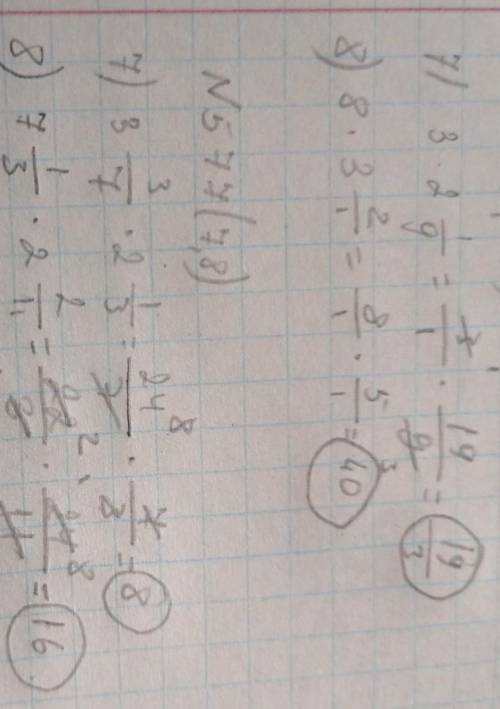 7) 3 · 2 1/9 = 3/1 · 19/9 = 19/3
8) 8 · 3 2/1 = 8/1 · 5/1 = 40
N577(7,8)
7) 3 3/7 · 2 1/3 = 24/7 · 7/3 = 8
8) 7 1/3 · 2 2/11 = 22/3 · 24/11 = 16